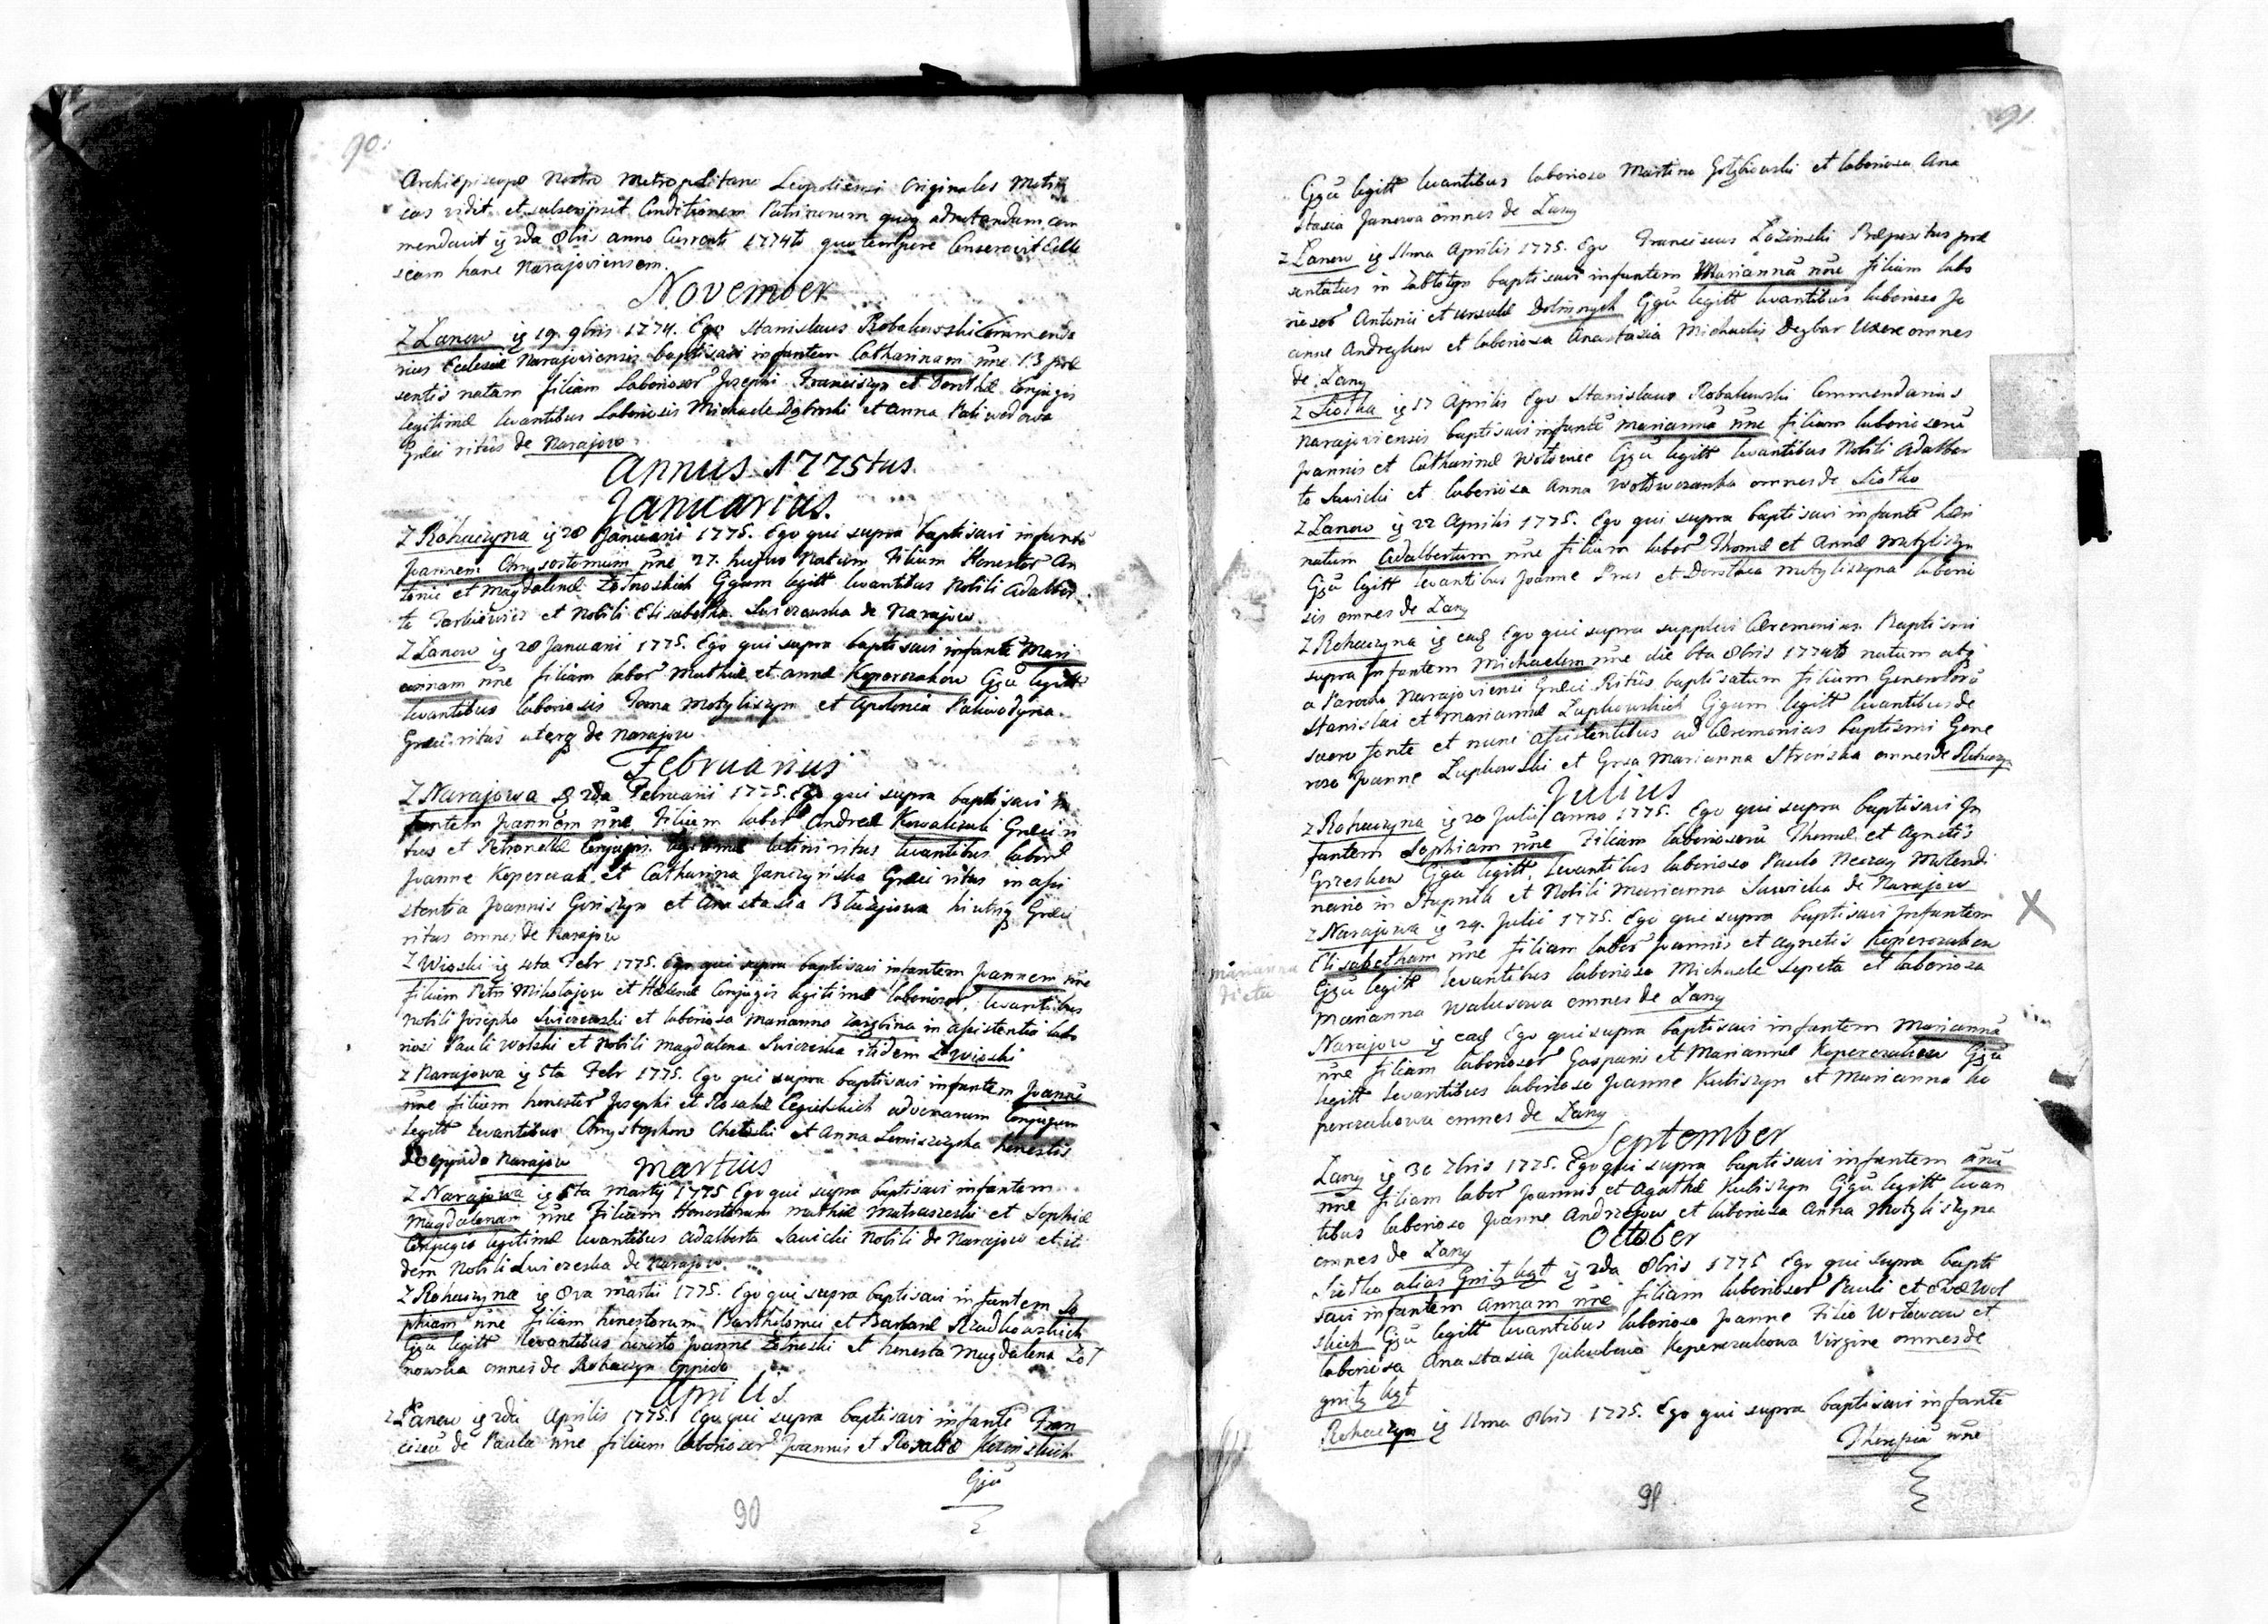 90.
Archiepiscopo Nostro Metropolitano Leopoliensi Originales Metri
cas vidit et subscripsit Conditionem Patrinorum quoq adnotandum com
mendavit ią 2da 8bris anno Currente 1774to quo tempore Consecravit Eccle
siam hanc Narajoviensem.
November
Z Łanow ią 19. 9bris 1774. Ego Stanislaus Robakowski Commenda
rius Ecclesiæ Narajoviensis baptisavi infantem Catharinam nne 13 præ
sentis natam filiam Laboriosor Josephi Franciszyn et Dorothæ Conjugis
legitimæ levantibus Laboriosis Michaele Dąbroski et Anna Paliwodowa
Græci ritûs de Narajow
Annus 1775tus.
Januarius.
Z Rohaczyna ią 28 Januarii 1775. Ego qui supra baptisavi infante
Joannem Chrysostomum nne 27. hujus Natum Filium Honestor An
tonii et Magdalenæ Żołnoskich Cjgum legitt levantibus Nobili Adalber
to Tarkiewicz et Nobili Elisabetha Swiczewska de Narajow.
Z Łanow ią 28 Januarii 1775. Ego qui supra baptisavi infante Mari
annam nne filiam labor Mathiæ et Annæ Koperczakow Cjgu legitt
levantibus laboriosis Toma Motyliszyn et Apolonia Paliwodyna
Græci ritus uterq de Narajow.
Februarius
Z Narajowa ią 2da Februarii 1775. Ego qui supra baptisavi in
fantem Joannem nne Filium labor Andreæ Kowaliszki Græci ri
tus et Petronellæ Conjugis legitimæ latini ritus levantibus labor
Joanne Koperczak et Catharina Janczyńska Græci ritus in assi
stentia Joannis Gryszyn et Anastasia Błażejowa hi utriq Græci
ritus omnes de Narajow
Z Wioski ią 4ta Febr 1775. Ego qui supra baptisavi infantem Joannem nne
filium Petri Mikołajow et Helenæ Conjugis legitimæ laboriosor levantibus
Nobili Josepho Swiczewski et laboriosa Marianna Zarębina in assistentia labo
riosi Pauli Wolski et Nobili Magdalena Swiczeska itidem Z Wioski
Z Narajowa ią 5ta Febr 1775. Ego qui supra baptisavi infantem Joanne
nne filium honestor Josephi et Rosaliæ Cegielskich advenarum Conjugum
legitt levantibus Chrystophoro Chelski et Anna Lemiszczycha honestis
De oppido Narajow
Martius
Z Narajowa ią 6ta Martij 1775 Ego qui supra baptisavi infantem
Magdalenam nne Filiam Honestorum Mathiæ Matraszeski et Sophiæ
Conjugis legitimæ levantibus Adalberto Sawicki Nobili de Narajow et iti
dem Nobili Swiczeska de Narajow.
Z Rohaczyna ią 8va Martii 1775. Ego qui supra baptisavi infantem So
phiam nne filiam honestorum Bartholomei et Barbaræ Rzadkowskich
Cjgu legitt levantibus honesto Joanne Żołnoski et honesta Magdalena Żoł
nowska omnes de Rohaczyn Oppido
Aprilis.
Z Łanow ią 2da Aprilis 1775. Ego qui supra baptisavi infante Fran
ciscu de Paula nne filium laboriosor Joannis et Rosaliæ
Cjgu
90
91
Cjgu legitt levantibus laborioso Martino et laboriosa Ana
stasia Janowa omnes de Łany
Z Łanow ią 11ma Aprilis 1775. Ego Franciscus Łoziński Præpositus præ
sentatus in baptisavi infantem Mariannã nne filiam labo
riosor Antonii et Ursulæ Cjgu legitt levantibus laborioso Jo
anne Andrzykow et laboriosa Anastasia Michaelis Dezbar Uxore omnes
de Łany
Z Siołka ią 17 Aprilis Ego Stanislaus Robakowski Commendarius
Narajoviensis baptisavi infantê Mariannã nne filiam laboriosorũ
Joannis et Catharinæ Wołowiec Cjgũ legitt levantibus Nobili Adalber
to Sawicki et laboriosa Anna Wołowczanka omnes de Siołko
Z Łanow ią 22 Aprilis 1775. Ego qui supra baptisavi infantê heri
natum Adalbertum nne filium labor Thomæ et Annæ Motyliszyn
Cjgu legitt levantibus Joanne Prus et Dorothea Motyliszyna laborio
sis omnes de Łany
Z Rohaczyna ią eadẽ Ego qui supra supplevi Cæremonias Baptismi
supra Infantem Michaelem nne die 6ta 8bris 1774to natum atq
a Parocho Narajoviensi Græci Ritûs baptisatum filium Generosorũ
Stanislai et Mariannæ Łupkowskich Cjgum legitt levantibus de
sacro fonte et nunc assistentibus ad Cæremonias baptismi Gene
roso Joanne Łupkowski et Grosa Marianna Strońska omnes de Rohaczyn
Julius
Z Rohaczyna ią 20 Julii anno 1775. Ego qui supra baptisavi In
fantem Sophiam nne Filiam laboriosorũ Thomæ et Agnetis
Grzeskow Cjgu legitt. levantibus laborioso Paulo Neczay Molendi
nario in et Nobili Marianna Sawicka de Narajow
Z Narajowa ią 24. Julii 1775. Ego qui supra baptisavi Infantem
X
Elisabetham nne filiam labor Joannis et Agnetis Koperczakow
marianna
dicta
Cjgũ legitt levantibus laborioso Michaele Sepeta et laboriosa
Marianna Walusowa omnes de Łany
Narajow ią eadẽ Ego qui supra baptisavi infantem Mariannã
nne filiam laboriosor Gaspari et Mariannæ Koperczakow Cjgũ
legitt levantibus laborioso Joanne Kuliszyn et Marianna Ko
perczakowa omnes de Łany
September
Łany ią 30 7bris 1775. Ego qui supra baptisavi infantem Anã
nne filiam labor Joannis et Agathæ Kuliszyn Cjgũ legitt levan
tibus laborioso Joanne Andrzejow et laboriosa Anna Motyliszyna
omnes de Łany
October
Siołko alias ią 2da 8bris 1775 Ego qui supra bapti
savi infantem Annam nne filiam laboriosor Pauli et Evæ Wol
skich Cjgũ legitt levantibus laborioso Joanne Filio Wołowcow et
laboriosa Anastasia Koperczakowa Virgine omnes de

Rohaczyn ią 11ma 8bris 1775. Ego qui supra baptisavi infante
Theresiã nne
91